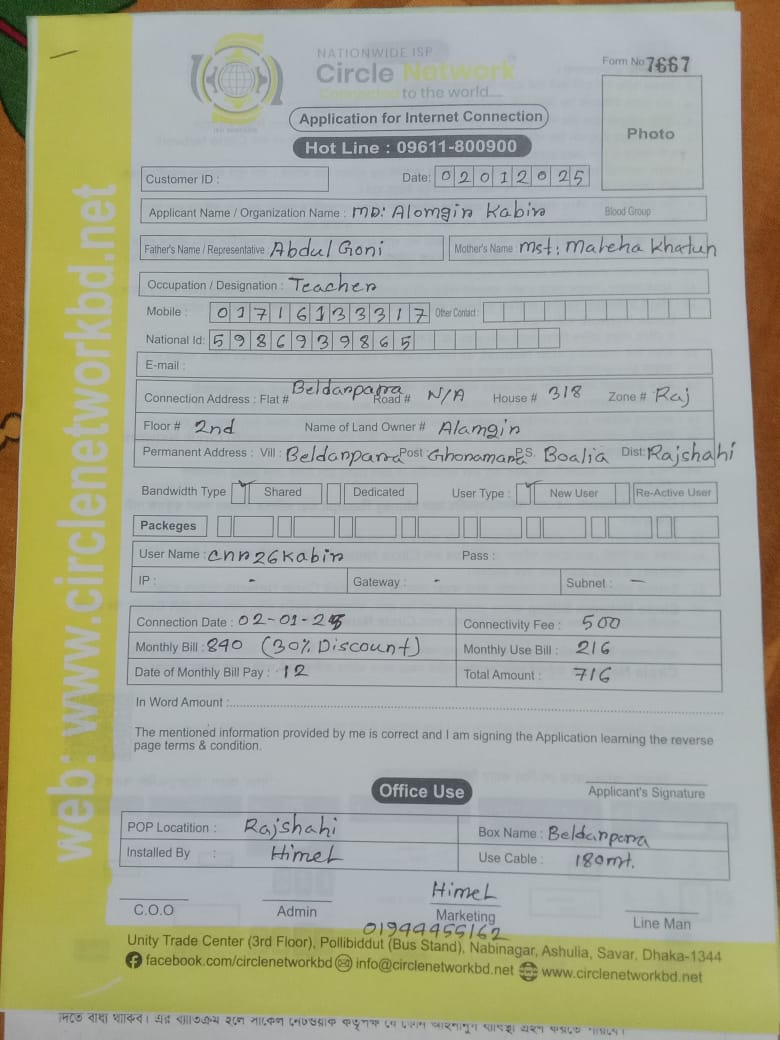 NATIONWIDE ISP
Circle Network
Connected to the world....
Form No 7667
Application for Internet Connection
Hot Line : 09611-800900
Photo
Customer ID :
Date: 02012025
Applicant Name / Organization Name : MD: Alomgin Kabin Blood Group
Father's Name / Representative Abdul Goni Mother's Name Mst: Mareha Khatun
Occupation / Designation : Teacher
Mobile : 01716133317 Other Contact :
National Id: 5986939865
E-mail :
Connection Address : Flat # Beldanparra Road # N/A House # 318 Zone # Raj
Floor # 2nd Name of Land Owner # Alamgin
Permanent Address : Vill : Beldanparra Post Ghoramara P.S. Boalia Dist: Rajshahi
Bandwidth Type ✓ Shared Dedicated User Type : ✓ New User Re-Active User
Packeges
User Name : cnn26kabin Pass :
IP : - Gateway : - Subnet : -
Connection Date : 02-01-25 Connectivity Fee : 500
Monthly Bill : 840 (30% Discount) Monthly Use Bill : 216
Date of Monthly Bill Pay : 12 Total Amount : 716
In Word Amount :
The mentioned information provided by me is correct and I am signing the Application learning the reverse
page terms & condition.
Applicant's Signature
Office Use
POP Locatition : Rajshahi Box Name : Beldanparra
Installed By : Himel Use Cable : 180mt.
Himel
C.O.O Admin Marketing Line Man
01944455162
Unity Trade Center (3rd Floor), Pollibiddut (Bus Stand), Nabinagar, Ashulia, Savar, Dhaka-1344
facebook.com/circlenetworkbd info@circlenetworkbd.net www.circlenetworkbd.net
web: www.circlenetworkbd.net